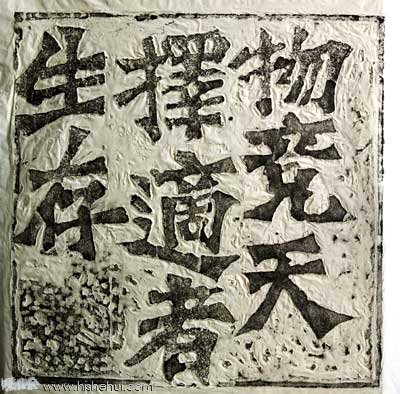 物竞天
擇適者
生存
www.hjshehui.com